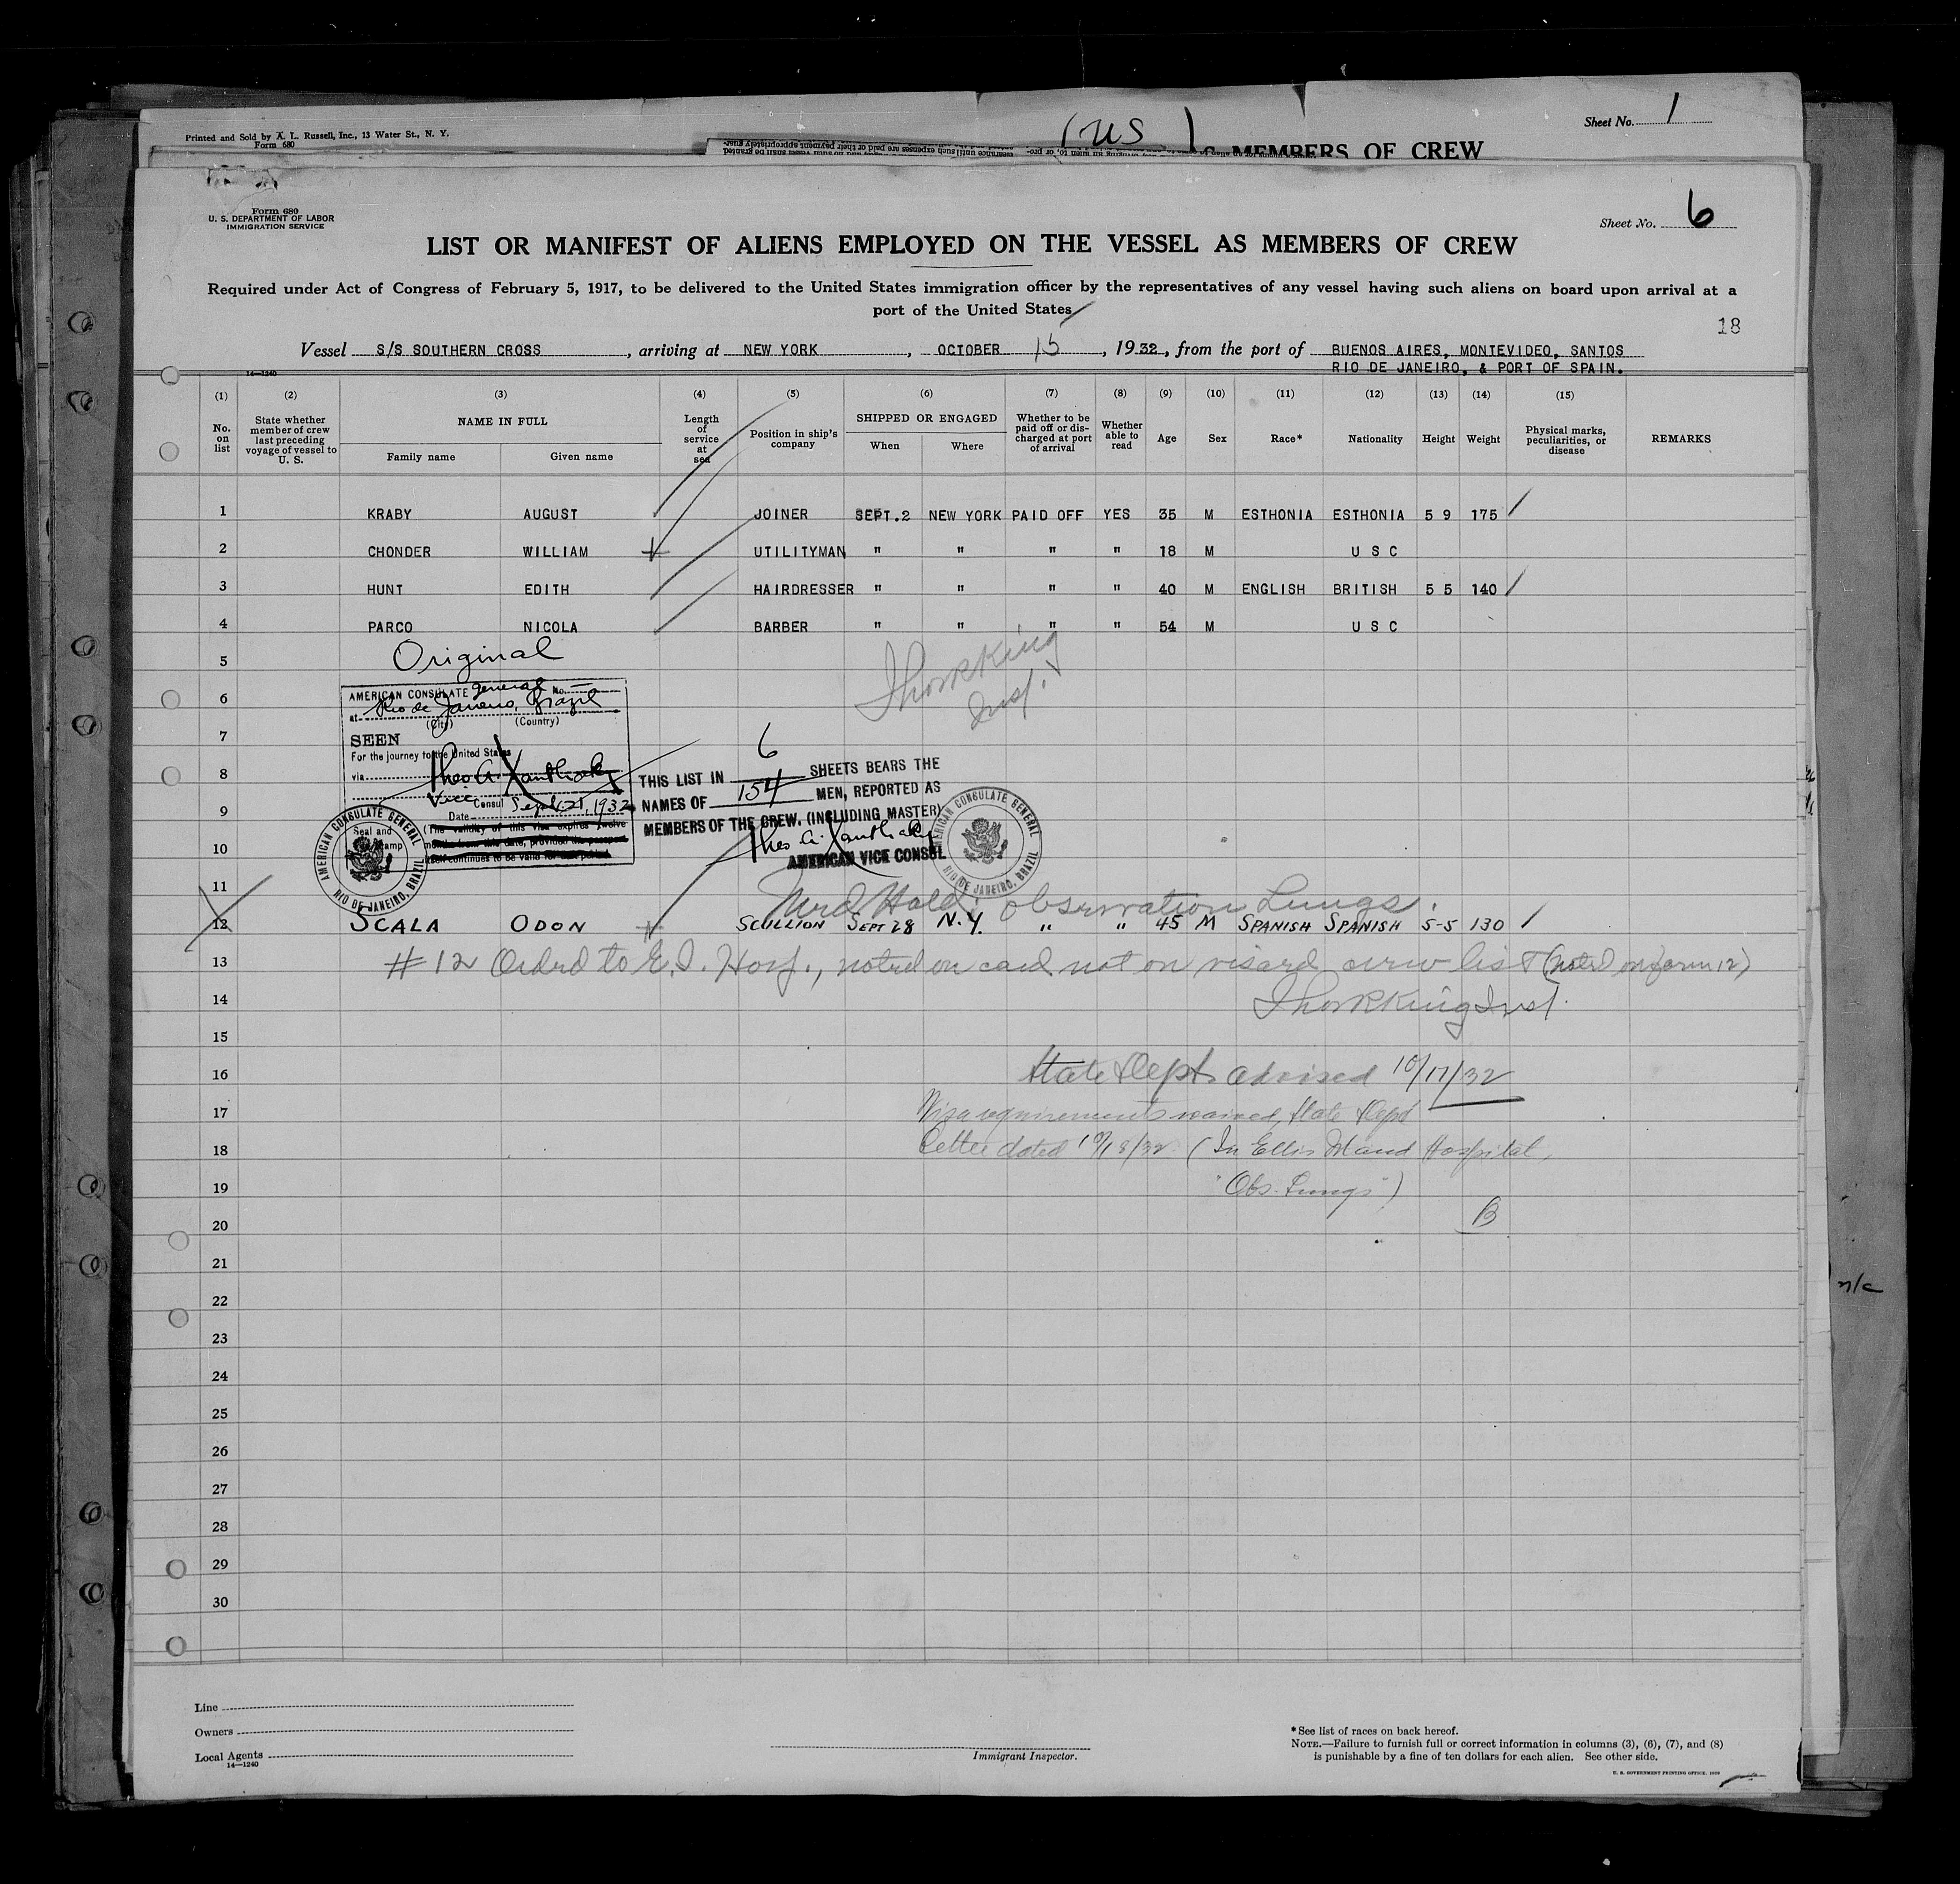 Printed and Sold by A. L. Russell, Inc., 13 Water St., N. Y.
Form 680
(US)
Sheet No. 1
MEMBERS OF CREW
Form 680
U. S. DEPARTMENT OF LABOR
IMMIGRATION SERVICE
Sheet No. 6
LIST OR MANIFEST OF ALIENS EMPLOYED ON THE VESSEL AS MEMBERS OF CREW
Required under Act of Congress of February 5, 1917, to be delivered to the United States immigration officer by the representatives of any vessel having such aliens on board upon arrival at a
port of the United States
18
Vessel S/S SOUTHERN CROSS, arriving at NEW YORK, OCTOBER 15, 1932, from the port of BUENOS AIRES, MONTEVIDEO, SANTOS
RIO DE JANEIRO, & PORT OF SPAIN.
14—1240
(1) (2) (3) (4) (5) (6) (7) (8) (9) (10) (11) (12) (13) (14) (15)
No. on list
State whether member of crew last preceding voyage of vessel to U. S.
NAME IN FULL
Family name
Given name
Length of service at sea
Position in ship's company
SHIPPED OR ENGAGED
When
Where
Whether to be paid off or discharged at port of arrival
Whether able to read
Age
Sex
Race*
Nationality
Height
Weight
Physical marks, peculiarities, or disease
REMARKS
1 KRABY AUGUST JOINER SEPT.2 NEW YORK PAID OFF YES 35 M ESTHONIA ESTHONIA 5 9 175
2 CHONDER WILLIAM UTILITYMAN " " " " 18 M U S C
3 HUNT EDITH HAIRDRESSER " " " " 40 M ENGLISH BRITISH 5 5 140
4 PARCO NICOLA BARBER " " " " 54 M U S C
5 Original
Thor R King
Inst.
6
AMERICAN CONSULATE general No.
at Rio de Janeiro, Brazil
(City) (Country)
7
SEEN
For the journey to the United States
8
via
Theo A. Xanthaky
Vice Consul Sept. 21, 1932
Date
9
(The validity of this visa expires twelve
months from this date, provided the passport
itself continues to be valid for that period.
Seal and
stamp
AMERICAN CONSULATE GENERAL
RIO DE JANEIRO, BRAZIL
THIS LIST IN 6 SHEETS BEARS THE
NAMES OF 154 MEN, REPORTED AS
MEMBERS OF THE CREW. (INCLUDING MASTER)
Theo A. Xanthaky
AMERICAN VICE CONSUL
AMERICAN CONSULATE GENERAL
RIO DE JANEIRO, BRAZIL
10
11 Med Hold: Observation Lungs.
12 SCALA ODON SCULLION SEPT 28 N.Y. " " 45 M SPANISH SPANISH 5-5 130
13 #12 Ordrd to E.I. Hosp., noted on card not on visaed crew list (noted on form 12)
14 Thor R King Inst.
15
16 State Dept advised 10/17/32
17 Visa requirements waived, State Dept
18 Letter dated 10/18/32 (In Ellis Island Hospital,
19 "Obs. Lungs")
20 B
21
22
23
24
25
26
27
28
29
30
n/c
Line
Owners
Local Agents
14—1240
Immigrant Inspector.
*See list of races on back hereof.
NOTE.—Failure to furnish full or correct information in columns (3), (6), (7), and (8)
is punishable by a fine of ten dollars for each alien. See other side.
U. S. GOVERNMENT PRINTING OFFICE.